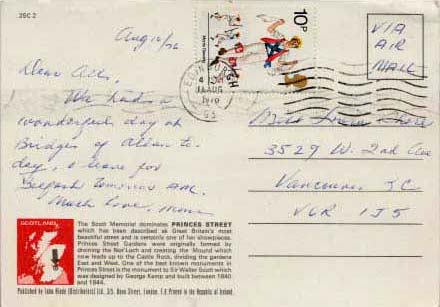 2SC 2
Aug 16/76
10P
Morris Dancing
EDINBURGH
AUG
1976
VIA
AIR
MAIL
Dear All,
We had a
wonderful day at
Bridges of Allan to-
day, & leave for
Belfast tomorrow AM.
Much love, Mum
3529 W. 2nd Ave
Vancouver BC
V6R 1J5
SCOTLAND
The Scott Memorial dominates PRINCES STREET
which has been described as Great Britain's most
beautiful street and is certainly one of her showpieces.
Princes Street Gardens were originally formed by
draining the Nor'Loch and creating the Mound which
now leads up to the Castle Rock, dividing the gardens
East and West. One of the best known monuments in
Princes Street is the monument to Sir Walter Scott which
was designed by George Kemp and built between 1840
and 1844.
Published by John Hinde (Distributors) Ltd., Street, London, Printed in the Republic of Ireland.